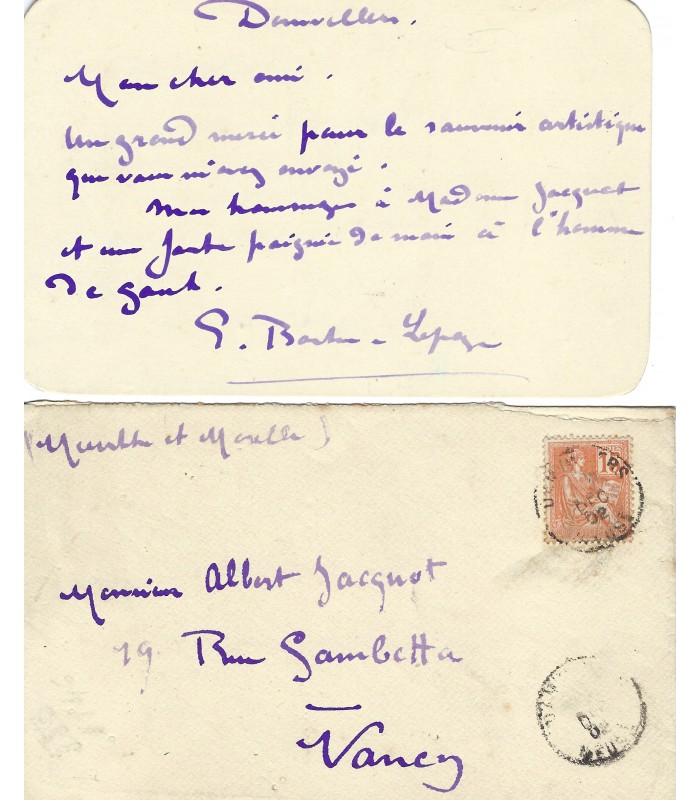 Damvillers.
Mon cher ami.
Un grand merci pour le souvenir artistique
que vous m'avez envoyé.
Mes hommages à Madame Jacquot
et une forte poignée de main à l'homme
de goût.
E. Bastien-Lepage
(Meurthe et Moselle)
Monsieur Albert Jacquot
19 Rue Gambetta
Nancy
DEC
02
MEUSE